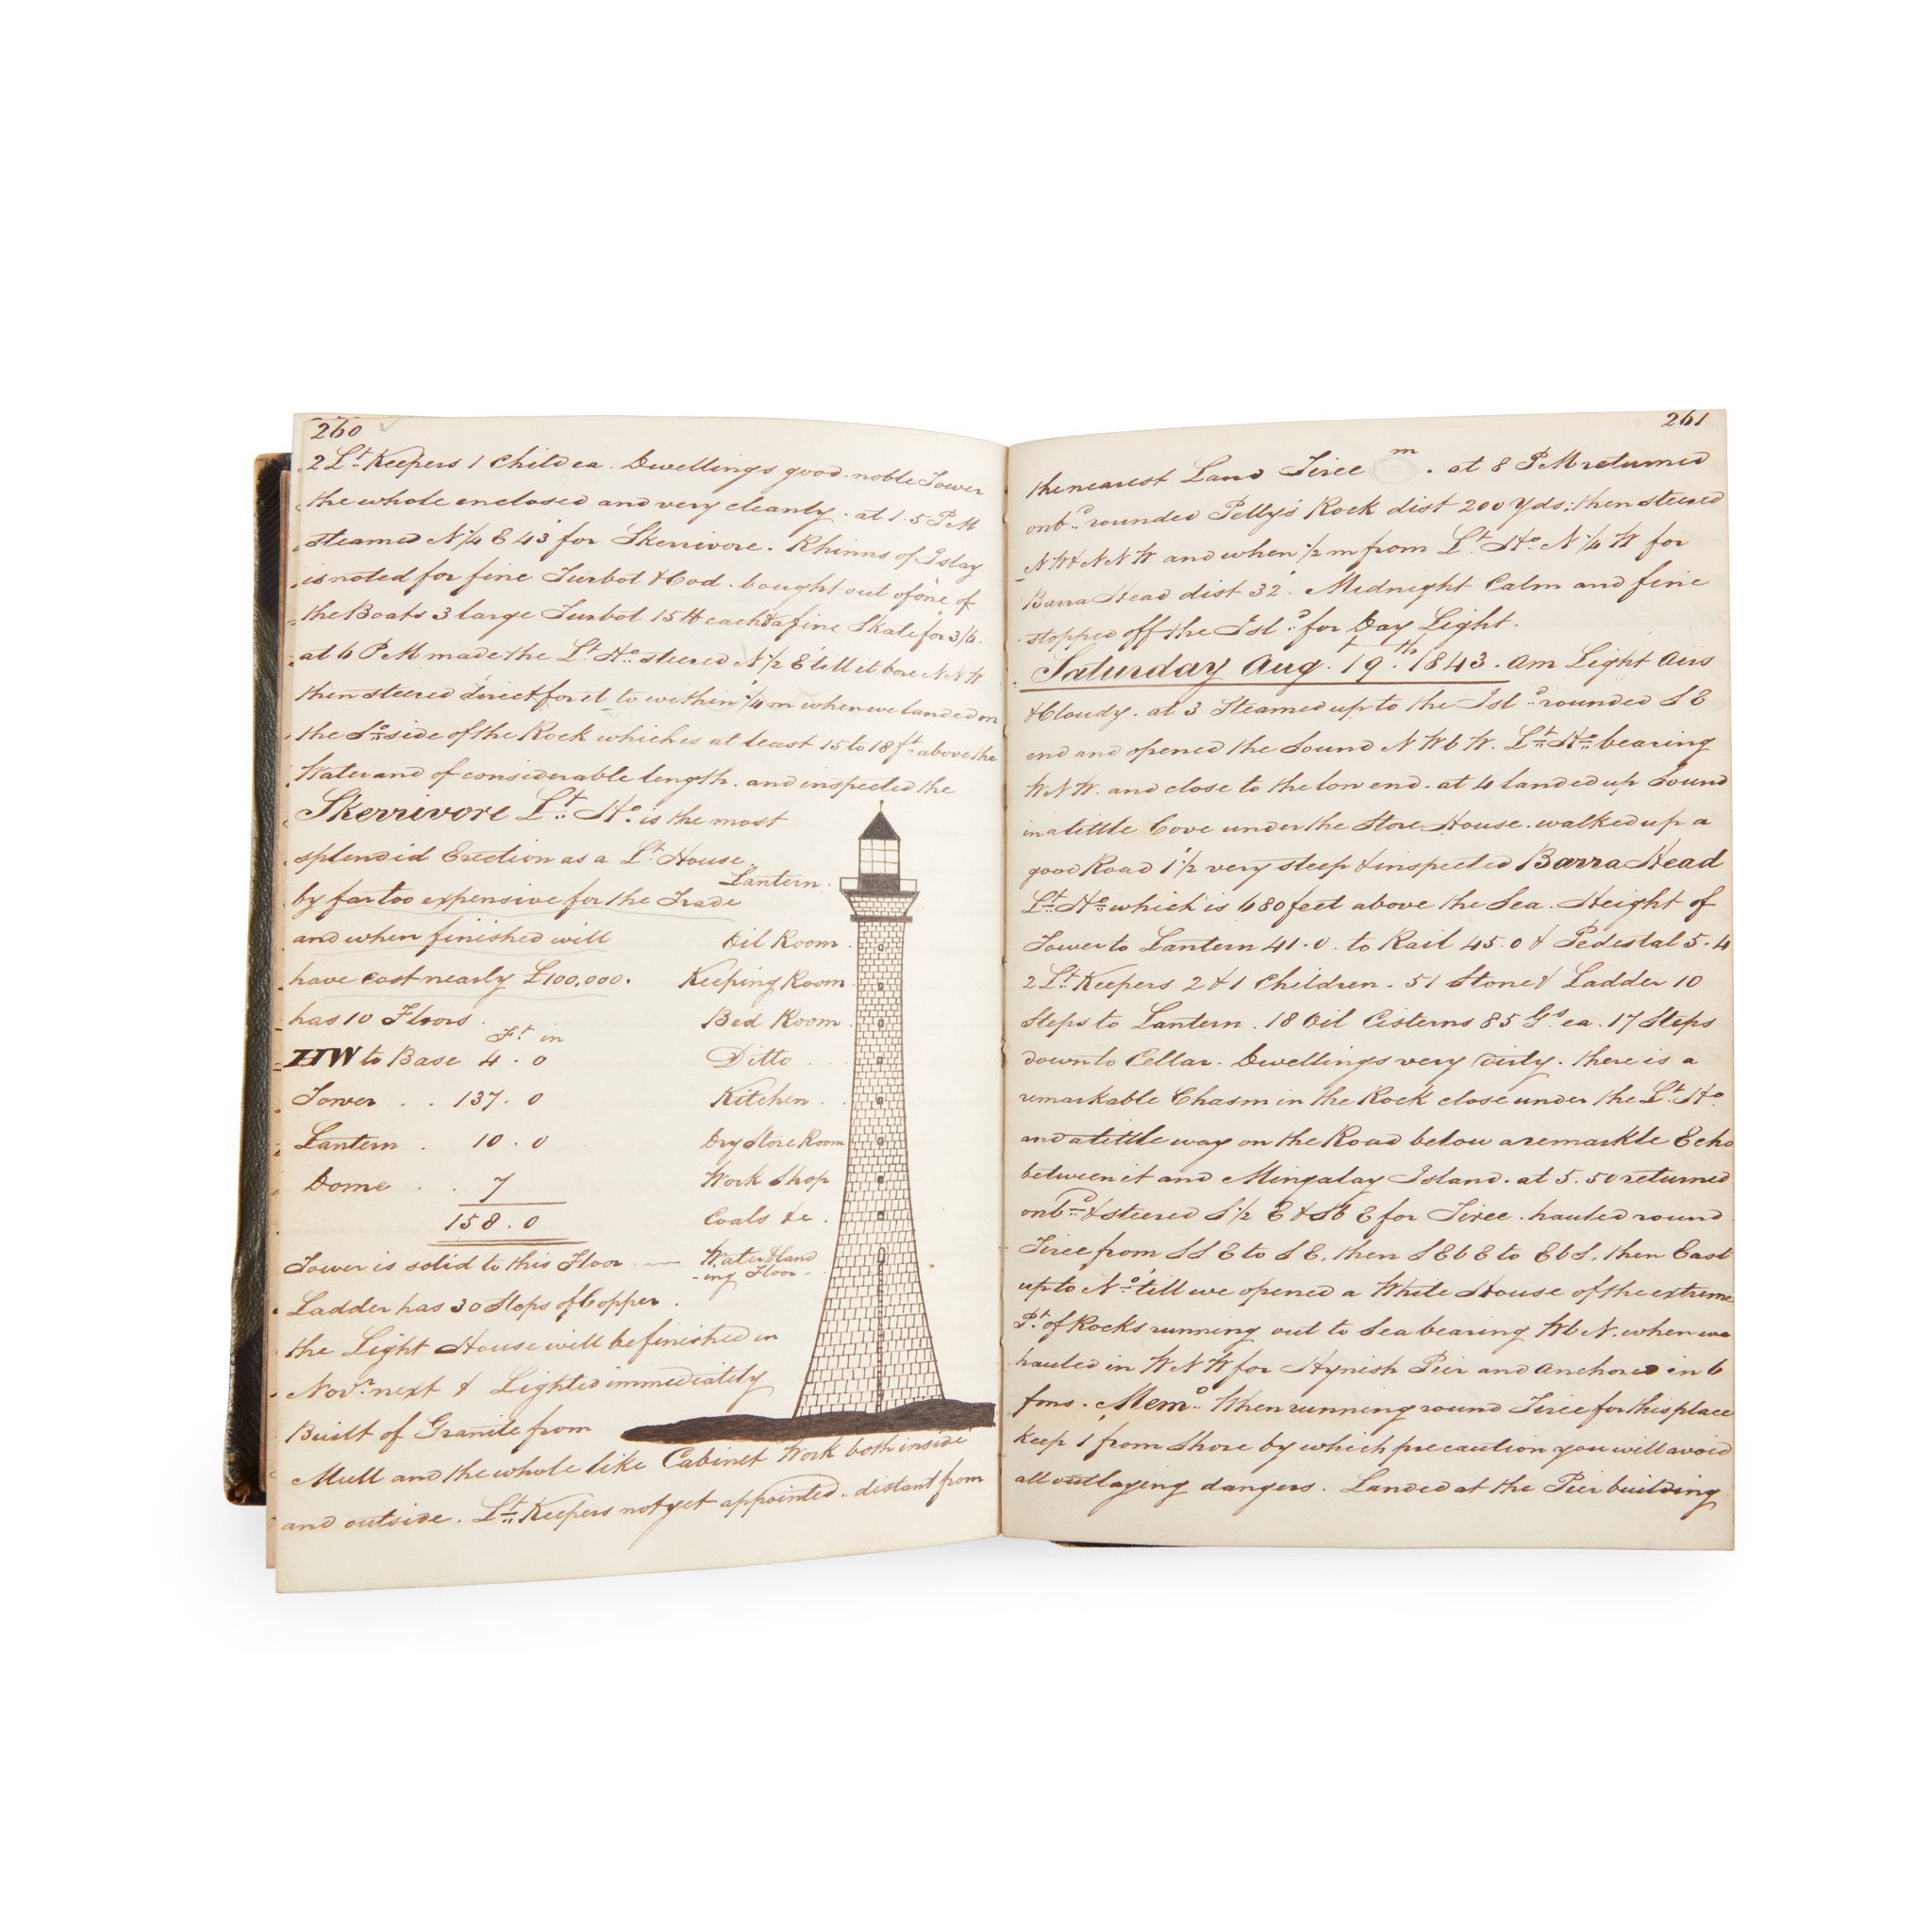 260
2 Lt. Keepers 1 Child ea. Dwellings good. noble Tower
the whole enclosed and very cleanly. at 1.5 PM
steamed N 1/4 E 43' for Skerrivore. Rhinns of Islay
is noted for fine Turbot & Cod. bought out of one of
the Boats 3 large Turbot 15 lb each & a fine Skate for 3/6.
at 6 PM made the Lt. Ho. steered N 1/2 E till it bore NNW
then steered direct for it to within 1/4 m when we landed on
the So. side of the Rock which is at least 15 to 18 ft. above the
Water and of considerable length. and inspected the
Skerrivore Lt. Ho. is the most
splendid Erection as a Lt. House.
by far too expensive for the Trade
and when finished will
have cost nearly £100,000.
has 10 Floors.
Ft in
HW to Base 4 . 0
Tower . . 137 . 0
Lantern . 10 . 0
Dome . . 7
158 . 0
Tower is solid to this Floor
Ladder has 30 Steps of Copper.
the Light House will be finished in
Novr. next & Lighted immediately
Built of Granite from
Mull and the whole like Cabinet Work both inside
and outside. Lt. Keepers not yet appointed.. distant from
Lantern.
Oil Room.
Keeping Room
Bed Room.
Ditto . .
Kitchen . .
Dry Store Room
Work Shop
Coals &c.
Water & land
-ing Floor -
261
the nearest Land Tiree m . at 8 PM returned
onbd. rounded Pelly's Rock dist 200 Yds: then steered
NW & NNW and when 1/2 m from Lt. Ho. N 1/4 W for
Barra Head dist 32'. Midnight Calm and fine
stopped off the Isld. for Day Light.
Saturday Aug. 19th. 1843. Am Light Airs
& Cloudy. at 3 Steamed up to the Isld. rounded SE
end and opened the Sound NWbW. Lt. Ho. bearing
WNW. and close to the low end. at 4 landed up Sound
in a little Cove under the Store House. walked up a
good Road 1' 1/2 very steep & inspected Barra Head
Lt. Ho. which is 680 feet above the Sea. Height of
Tower to Lantern 41.0. to Rail 45.0 & Pedestal 5.4
2 Lt. Keepers 2 & 1 Children. 51 Stone & Ladder 10
Steps to Lantern. 18 Oil Cisterns 85 Gs. ea. 17 Steps
down to Cellar. Dwellings very dirty. there is a
remarkable Chasm in the Rock close under the Lt. Ho.
and a little way on the Road below a remarkle Echo
between it and Mingalay Island. at 5.50 returned
onbd. & steered S 1/2 E & SbE for Tiree. hauled round
Tiree from SSE to SE. then SEbE to EbS. then East
up to No. till we opened a White House of the extreme
Pt. of Rocks running out to Sea bearing WbN. when we
hauled in WNW for Hynish Pier and Anchored in 6
fms. Memo. When running round Tiree for this place
keep 1' from Shore by which precaution you will avoid
all outlaying dangers. Landed at the Pier building